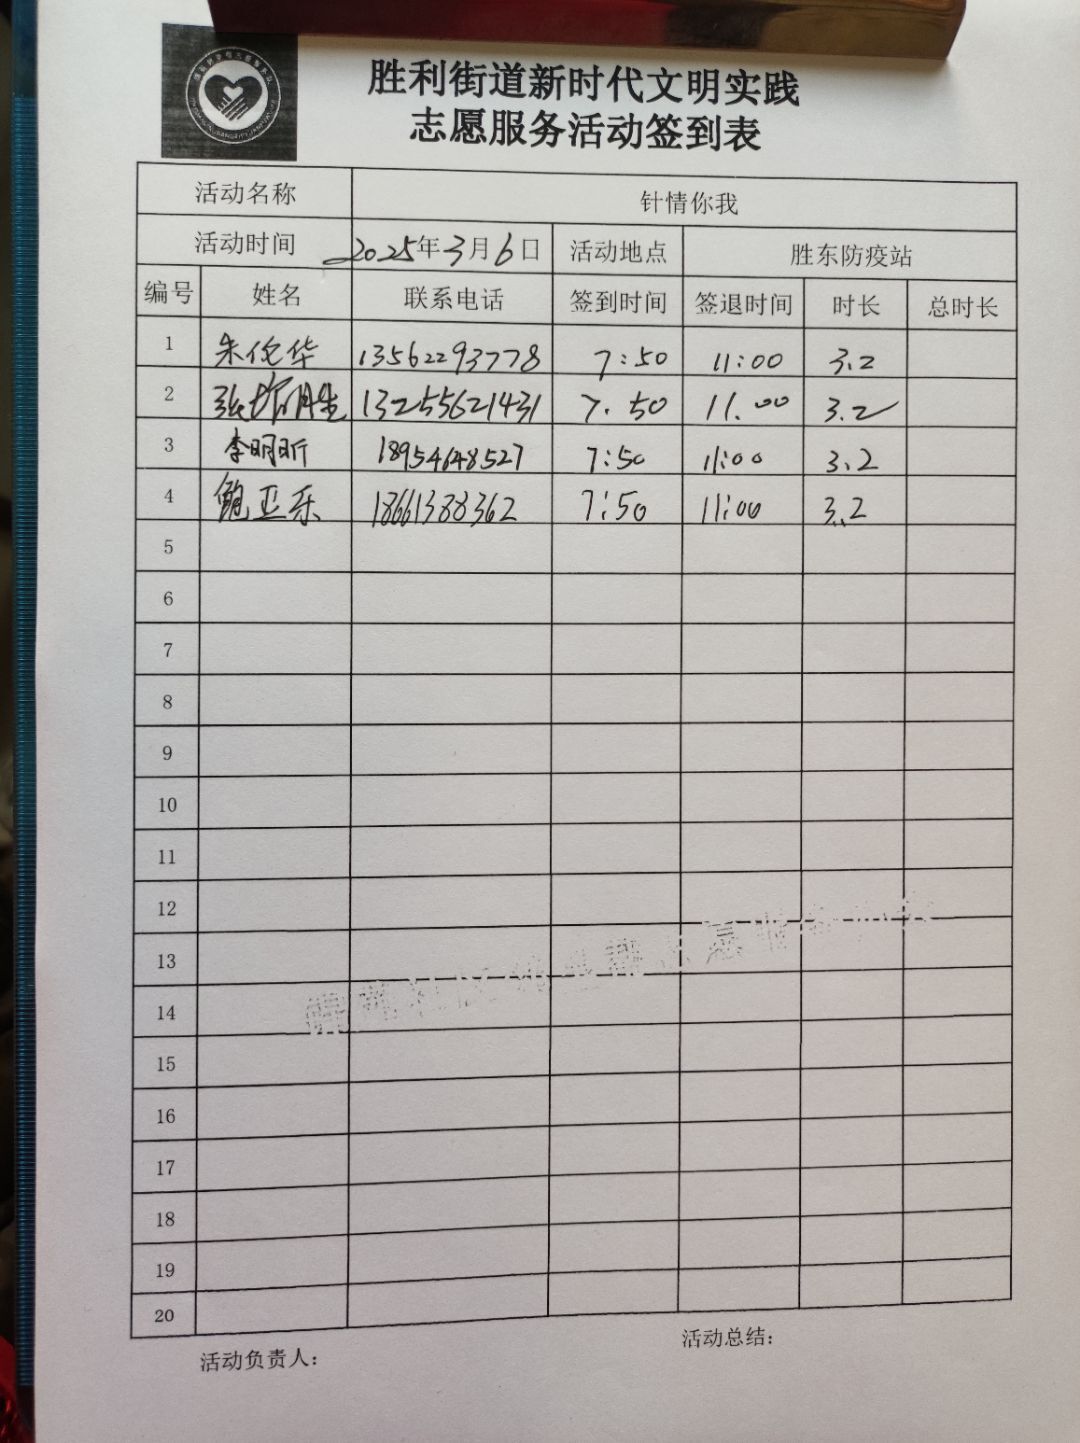 胜利街道新时代文明实践
志愿服务活动签到表
活动名称 针情你我
活动时间 2025年3月6日 活动地点 胜东防疫站
编号 姓名 联系电话 签到时间 签退时间 时长 总时长
1 朱伦华 13562293778 7:50 11:00 3.2
2 张 13255621431 7.50 11.00 3.2
3 李明昕 18954648527 7:50 11:00 3.2
4 鲍亚乐 18661388362 7:50 11:00 3.2
5
6
7
8
9
10
11
12
13
14
15
16
17
18
19
20
活动负责人： 活动总结：